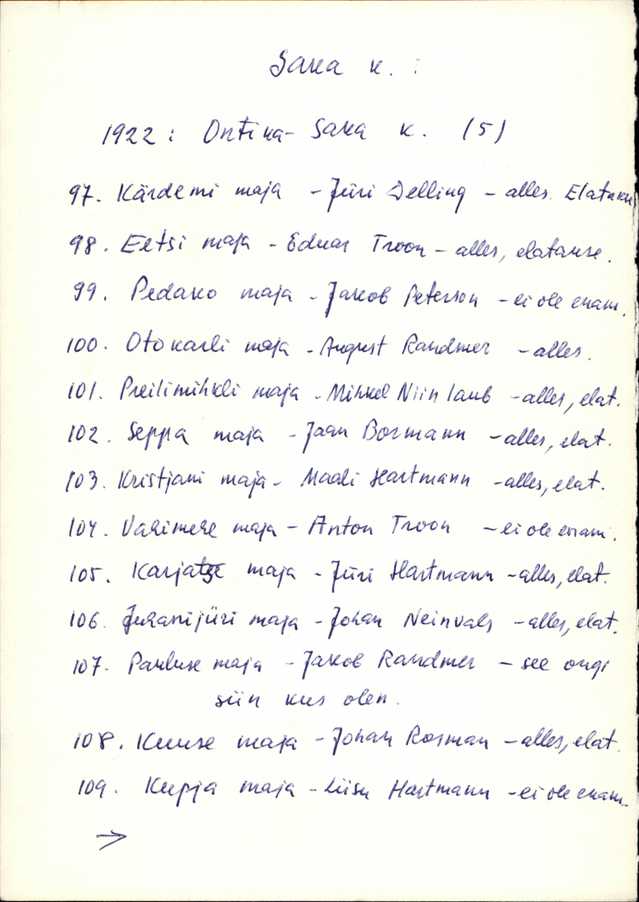 Saka k. :
1922: Ontika-Saka k. (5)
97. Kärdemi maja - Jüri Delling - alles. Elatakse
98. Eetsi maja - Eduar Troon - alles, elatakse.
99. Pedasko maja - Jakob Peterson - ei ole enam.
100. Otokarli maja - August Randmer - alles.
101. Preilimihkli maja - Mihkel Niinlaub - alles, elat.
102. Seppa maja - Jaan Bormann - alles, elat.
103. Kristjani maja - Maali Hartmann - alles, elat.
104. Varimere maja - Anton Troon - ei ole enam.
105. Karjatse maja - Jüri Hartmann - alles, elat.
106. Juhanijüri maja - Johan Neinvals - alles, elat.
107. Pauluse maja - Jakob Randmer - see ongi
siin kus olen.
108. Kuuse maja - Johan Rosman - alles, elat.
109. Kupja maja - Liisu Hartmann - ei ole enam.
→